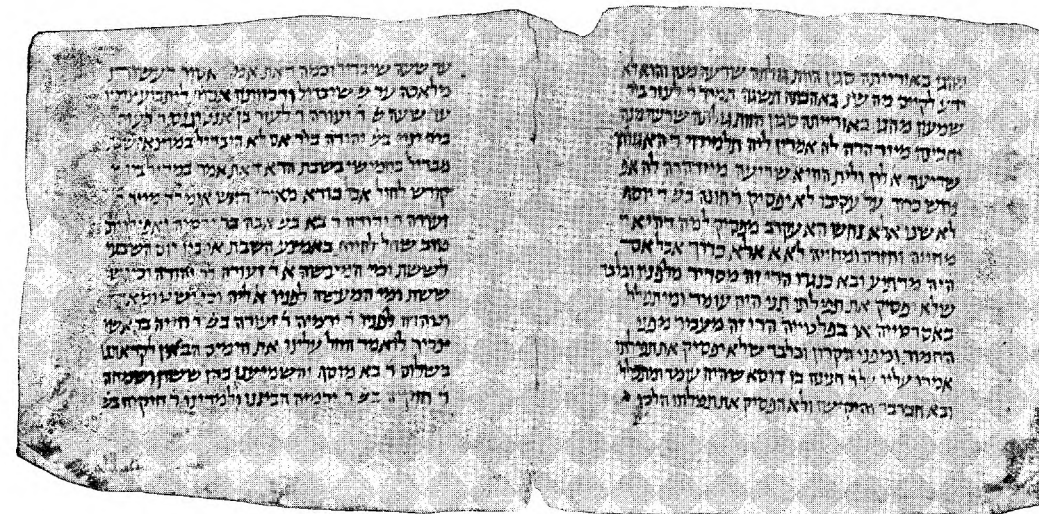 באורייתה סגין הוות גולתה שרעה מנן והוא לא
ידע לקיים מה שנ באהבתה תשגה תמיד ר לעזר ביר
שמעון מהנו באורייתה סגין הוות גולתה שרעה מנה
מיזדהרה לה אמרין ליה תלמידוי ר הא גולתך
שריעה א לון ולית החיא שריעה מיזדהרה לה אפ
נחש כרוך על עקיבו לא יפסיק ר חונה בש ר יוסה
לא שנו אלא נחש הא עקרב מפסיק למה דהיא ר
מחייה וחזרה ומחייה לא א אלא כרוך אבל אם
היה מרתיע ובא כנגדו הרי זה מסתיר מלפניו ובלבד
שלא יפסיק את תפילתו תני היה עומד ומיתפלל
באסרטייה או בפלטייה הרי זה מעביר מפני
החמור ומפני הקרון ובלבד שלא יפסיק את תפילתו
אמרו עליו על ר חנינה בן דוסא שהיה עומד ומתפלל
ובא חברבר והיקישו ולא הפסיק את תפילתו הלכו
עד שעה שיבדיל וכמה דאת אמר אסור לעשות
מלאכה עד ש שיבדיל ודכוותה אסור לתבוע צרכיו
עד שעה ש ר זעורה ר לעזר בן אנטיגנוס ר לעזר
ביר יניי בש יהודה ביר אם לא הבדיל במוצאי שבת
מבדיל בחמישי בשבת הדא דאת אמר במבדיל בין
קודש לחול אבל בורא מאורי האש אומרה מייד ר
זעורה ר יהודה ר בא בש אבה בר ירמיה ואפילו
טוב שחל להיות באמצע השבת או בין יום השביעי
לששת ימי המעשה א ר זעורה לר יהודה וכי יש
ששת ימי המעשה לפניו א ליה וכי יש טומאה
וטהרה לפניו ר ירמיה ר זעורה בש ר חייה בר אשי
צריך לומר החל עלינו את הימים הבאין לקראתנו
בשלום ר בא מוסף והשמיענו בהן ששון ושמחה
ר חזקיה בש ר ירמיה הביננו ולמדינו ר חזקיה בש